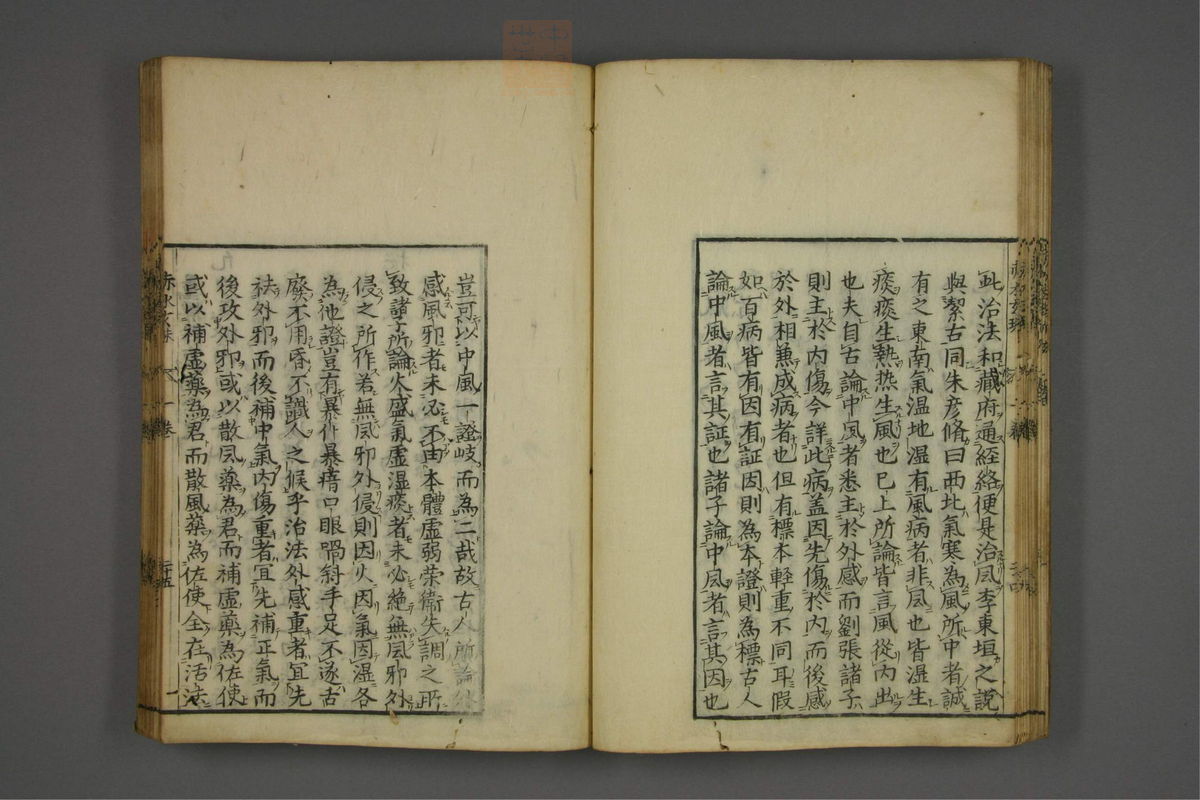 此治法和臟府通經絡便是治風李東垣之說
與潔古同朱彦脩曰西北氣寒為風所中者誠
有之東南氣温地湿有風病者非風也皆湿生
痰痰生熱热生風也已上所論皆言風從內出
也夫自古論中風者悉主於外感而劉張諸子
則主於內傷今詳此病盖因先傷於內而後感
於外相兼成病者也但有標本輕重不同耳假
如百病皆有因有証因則為本證則為標古人
論中風者言其証也諸子論中風者言其因也
豈可以中風一證岐而為二哉故古人所論外
感風邪者未必不由本體虛弱荣衛失調之所
致諸子所論火盛氣虛湿痰者未必絶無風邪外
侵之所作若無風邪外侵則因火因氣因湿各
為他證豈有暴仆暴瘖口眼喎斜手足不遂古
廢不用昏不識人之候乎治法外感重者宜先
祛外邪而後補中氣內傷重者宜先補正氣而
後攻外邪或以散風藥為君而補虛藥為佐使
或以補虛藥為君而散風藥為佐使全在活法
赤水玄珠
一卷
二十五